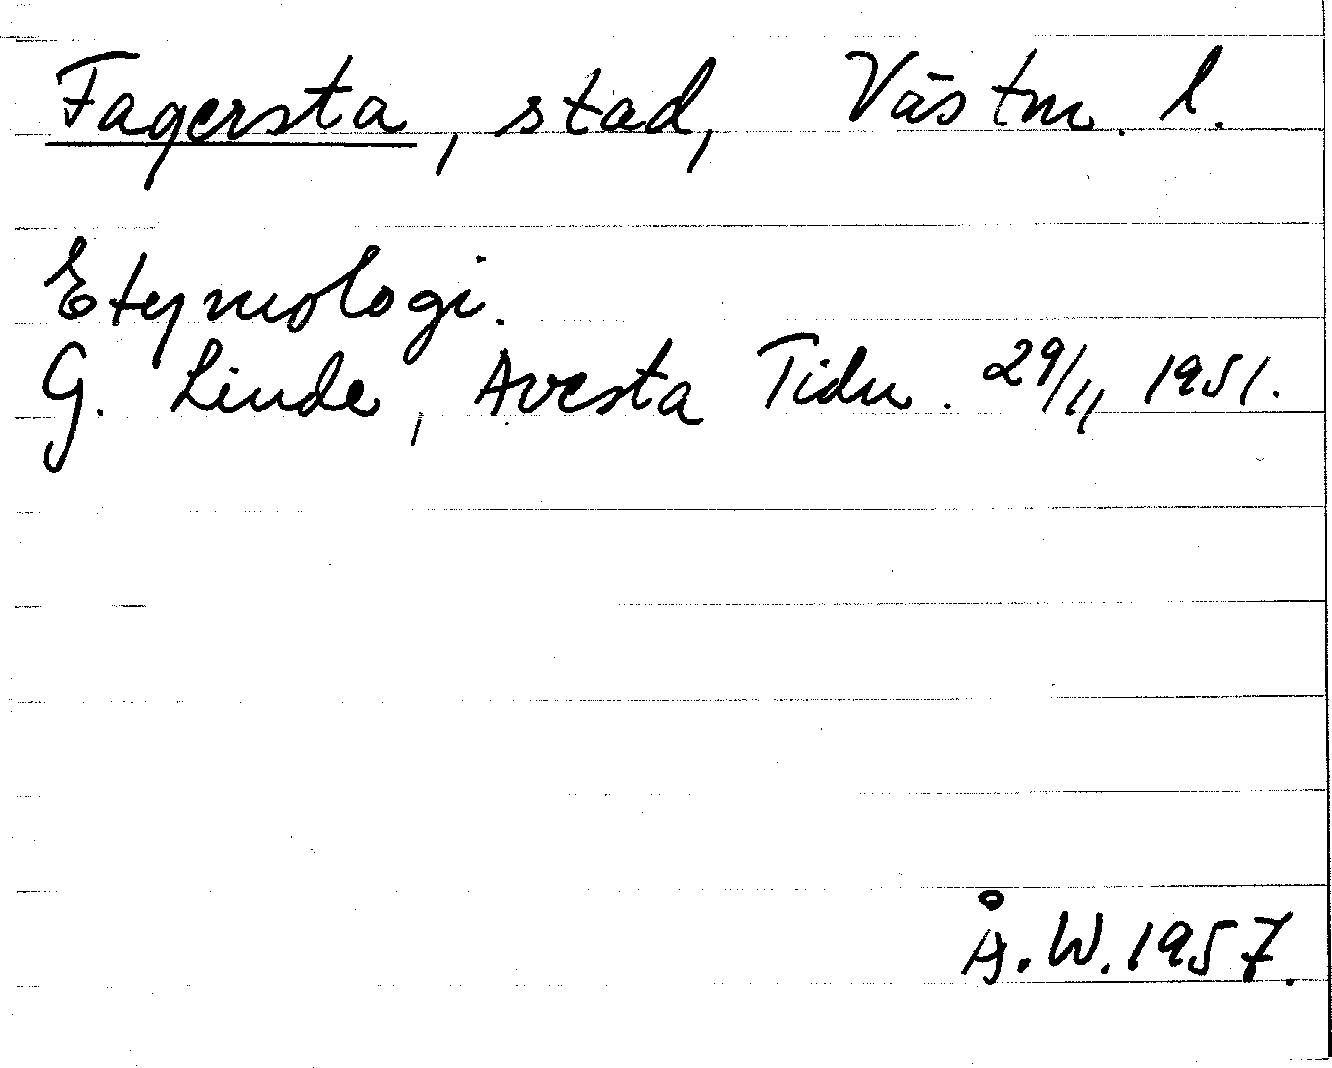 Fagersta, stad, Västm. l.
Etymologi.
G. Linde, Avesta Tidn. 29/11 1951.
Å.W.1957.